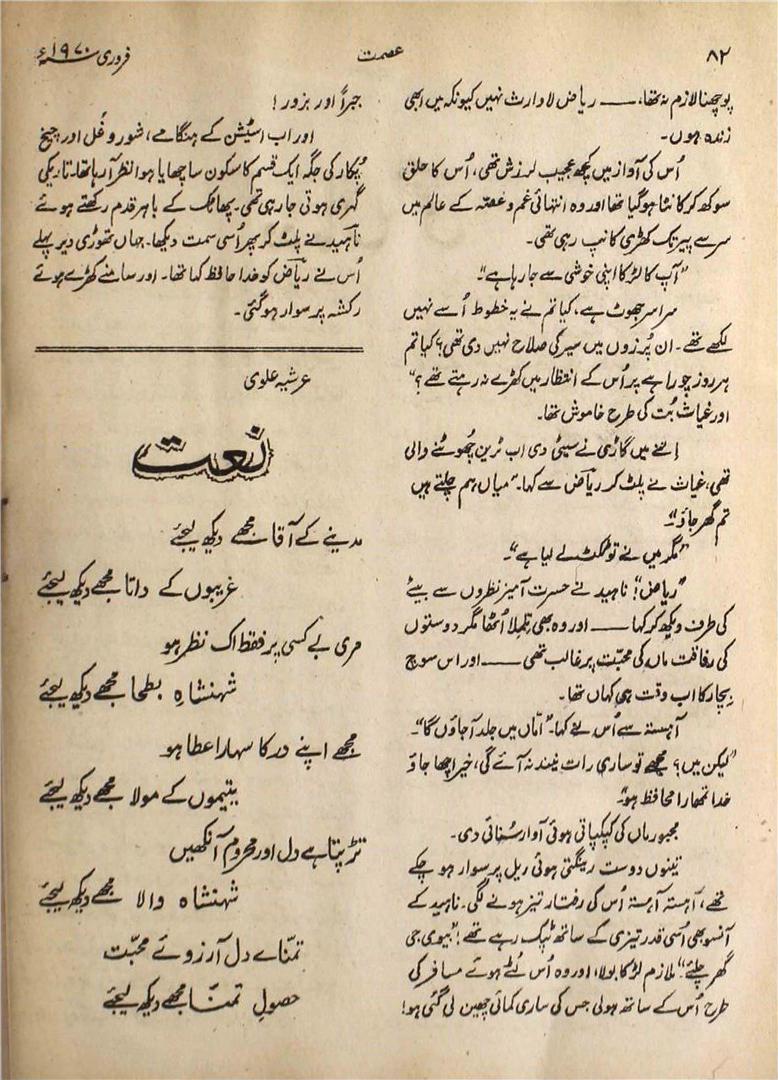 ۸۲
عصمت
فروری ۱۹۷۰ء
پوچھنا لازم نہ تھا، —— ریاض لاوارث نہیں کیونکہ میں ابھی
زندہ ہوں۔
اُس کی آواز میں کچھ عجیب لرزش تھی، اُس کا حلق
سوکھ کر کانٹا ہو گیا تھا اور وہ انتہائی غم و غصہ کے عالم میں
سر سے پیر تک کھڑی کانپ رہی تھی۔
"آپ کا لڑکا اپنی خوشی سے جا رہا ہے"۔
سراسر جھوٹ ہے، کیا تم نے یہ خطوط اُسے نہیں
لکھے تھے۔ ان پُرزوں میں سیر کی صلاح نہیں دی تھی؟ کیا تم
ہر روز چوراہے پر اُس کے انتظار میں کھڑے نہ رہتے تھے؟"
اور غیاث بُت کی طرح خاموش تھا۔
اِتنے میں گاڑی نے سیٹی دی اب ٹرین چھوٹنے والی
تھی، غیاث نے پلٹ کر ریاض سے کہا۔ "میاں ہم چلتے ہیں
تم گھر جاؤ"۔
"مگر میں نے تو ٹکٹ لے لیا ہے"۔
"ریاض"! ناہید نے حسرت آمیز نظروں سے بیٹے
کی طرف دیکھ کر کہا —— اور وہ بھی تلملا اُٹھا مگر دوستوں
کی رفاقت ماں کی محبت پر غالب تھی —— اور اس سوچ
بچار کا اب وقت ہی کہاں تھا۔
آہستہ سے اُس نے کہا۔ "اماں میں جلد آجاؤں گا"۔
"لیکن میں؟ مجھے تو ساری رات نیند نہ آئے گی، خیر اچھا جاؤ
خدا تمھارا محافظ ہو"۔
مجبور ماں کی کپکپاتی ہوئی آواز سُنائی دی۔
تینوں دوست رینگتی ہوئی ریل پر سوار ہو چکے
تھے، آہستہ آہستہ اُس کی رفتار تیز ہونے لگی۔ ناہید کے
آنسو بھی اُسی قدر تیزی کے ساتھ ٹپک رہے تھے! "بیوی جی
گھر چلئے" ملازم لڑکا بولا، اور وہ اُس لُٹے ہوئے مسافر کی
طرح اُس کے ساتھ ہولی جس کی ساری کمائی چھین لی گئی ہو!
جبراً اور بزور!
اور اب اسٹیشن کے ہنگامے، شور و غُل اور چیخ
پُکار کی جگہ ایک قسم کا سکون سا چھایا ہوا نظر آرہا تھا۔ تاریکی
گہری ہوتی جارہی تھی۔ پھاٹک کے باہر قدم رکھتے ہوئے
ناہید نے پلٹ کر پھر اُسی سمت دیکھا۔ جہاں تھوڑی دیر پہلے
اُس نے ریاض کو خدا حافظ کہا تھا۔ اور سامنے کھڑے ہوئے
رکشہ پر سوار ہوگئی۔
عرشیہ علوی
نعت
مدینے کے آقا مجھے دیکھ لیجئے
غریبوں کے داتا مجھے دیکھ لیجئے
مری بے کسی پر فقط اک نظر ہو
شہنشاہِ بطحا مجھے دیکھ لیجئے
مجھے اپنے در کا سہارا عطا ہو
یتیموں کے مولا مجھے دیکھ لیجئے
تڑپتا ہے دل اور محروم آنکھیں
شہنشاہ والا مجھے دیکھ لیجئے
تمنّاے دل آرزوئے محبّت
حصولِ تمنّا مجھے دیکھ لیجئے